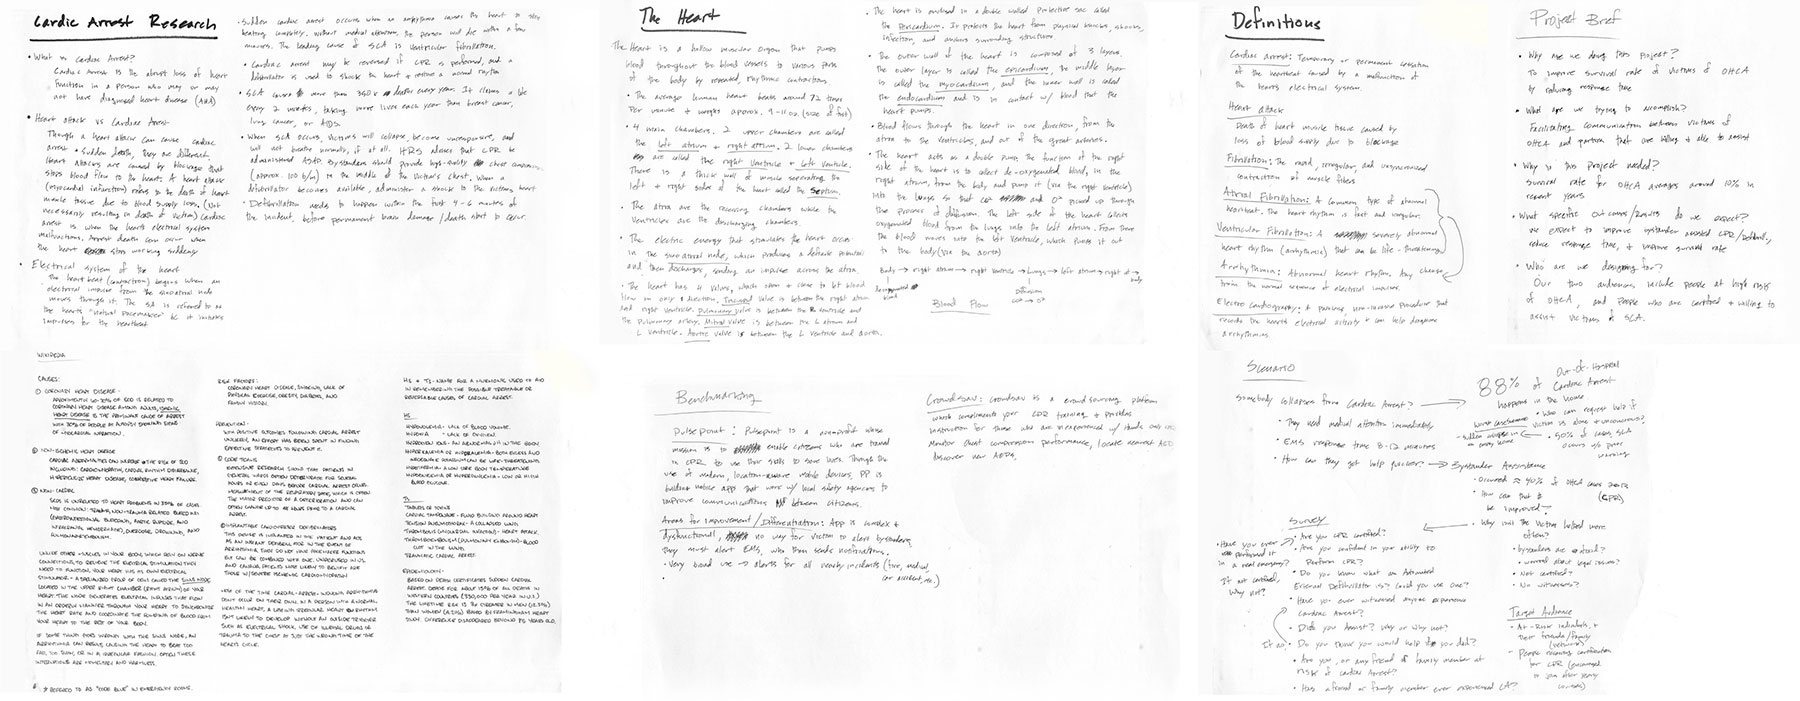 Cardiac Arrest Research
• What is Cardiac Arrest?
Cardiac Arrest is the abrupt loss of heart
function in a person who may or may
not have diagnosed heart disease (AHA)
• Heart attack vs Cardiac Arrest
Though a heart attack can cause cardiac
arrest + sudden death, they are different.
Heart attacks are caused by blockage that
stops blood flow to the heart. A heart attack
(myocardial infarction) refers to the death of heart
muscle tissue due to blood supply loss. (Not
necessarily resulting in death of victim) Cardiac
arrest is when the hearts electrical system
malfunctions. Arrest death can occur when
the heart stops working suddenly
• Electrical system of the heart
The heart beat (contraction) begins when an
electrical impulse from the sinoatrial node
moves through it. The SA is referred to as
the hearts "natural pacemaker" bc it initiates
impulses for the heartbeat
• Sudden cardiac arrest occurs when an arrhythmia causes the heart to stop
beating completely. Without medical attention, the person will die within a few
minutes. The leading cause of SCA is Ventricular fibrillation.
• Cardiac arrest may be reversed if CPR is performed, and a
defibrillator is used to shock the heart + restore a normal rhythm
• SCA causes more than 350k deaths every year. It claims a life
every 2 minutes, taking more lives each year than breast cancer,
lung cancer, or AIDS.
• When SCA occurs victims will collapse, become unresponsive, and
will not breathe normally, if at all. HRS advises that CPR be
administered ASAP. Bystanders should provide high-quality chest compressions
(approx. 100 b/m) to the middle of the victim's chest. When a
defibrillator becomes available, administer a shock to the victims heart
• Defibrillation needs to happen within the first 4-6 minutes of
the incident, before permanent brain damage / death start to occur
The Heart
The Heart is a hollow muscular organ that pumps
blood throughout the blood vessels to various parts
of the body by repeated, rhythmic contractions.
• The average human heart beats around 72 times
Per minute + weighs approx. 9-11 oz. (size of fist)
• 4 main chambers. 2 upper chambers are called
the left atrium + right atrium. 2 lower chambers
are called the right Ventricle + left Ventricle.
There is a thick wall of muscle separating the
left + right sides of the heart called the Septum.
• The atria are the receiving chambers while the
Ventricles are the discharging chambers.
• The electric energy that stimulates the heart occurs
in the sinoatrial node, which produces a definite potential
and then discharges, sending an impulse across the atria.
• The heart has 4 valves, which open + close to let blood
flow in only 1 direction. Tricuspid valve is between the right atrium
and right ventricle. Pulmonary valve is between the R ventricle and
the Pulmonary artery. Mitral valve is between the L atrium and
L ventricle. Aortic valve is between the L ventricle and aorta.
• The heart is enclosed in a double walled protective sac called
the Pericardium. It protects the heart from physical knocks, shocks,
infection, and anchors surrounding structures
• The outer wall of the heart is composed of 3 layers.
The outer layer is called the epicardium, the middle layer
is called the myocardium, and the inner wall is called
the endocardium and is in contact w/ blood that the
heart pumps.
• Blood flows through the heart in one direction, from the
atria to the ventricles, and out of the great arteries.
• The heart acts as a double pump. The function of the right
side of the heart is to collect de-oxygenated blood, in the
right atrium, from the body and pump it (via the right ventricle)
into the lungs so that CO² and O² picked up through
the process of diffusion. The left side of the heart collects
oxygenated blood from the lungs into the left atrium. From there
the blood moves into the left ventricle, which pumps it out
to the body (via the aorta)
Body → right atrium → right ventricle → Lungs → left atrium →
body
de-oxygenated
blood
Diffusion
CO² → O²
Blood Flow
Definitions
Cardiac arrest: Temporary or permanent cessation
of the heartbeat caused by a malfunction of
the hearts electrical system.
Heart attack
Death of heart muscle tissue caused by
loss of blood supply due to blockage
Fibrillation: The rapid, irregular, and unsynchronized
contraction of muscle fibers
Atrial Fibrillation: A common type of abnormal
heartbeat. The heart rhythm is fast and irregular.
Ventricular Fibrillation: A severely abnormal
heart rhythm (arrhythmia) that can be life-threatening
Arrhythmia: Abnormal heart rhythm. Any change
from the normal sequence of electrical impulses
Electro Cardiography: A painless, non-invasive procedure that
records the hearts electrical activity + can help diagnose
arrhythmias
Project Brief
• Why are we doing this Project?
To improve survival rate of victims of OHCA
by reducing response time
• What are we trying to accomplish?
Facilitating communication between victims of
OHCA and person that are willing + able to assist
• Why is this project needed?
Survival rate for OHCA averages around 10% in
recent years
• What specific outcomes/results do we expect?
We expect to improve bystander assisted CPR/Defibrill,
reduce response time, + improve survival rate
• Who are we designing for?
Our two audiences include people at high risks
of OHCA, and people who are certified + willing to
assist victims of SCA.
WIKIPEDIA
CAUSES:
① CORONARY HEART DISEASE -
APPROXIMATELY 60-70% OF SCD IS RELATED TO
CORONARY HEART DISEASE. AMONG ADULTS, ISCHEMIC
HEART DISEASE IS THE PREVALENT CAUSE OF ARREST
WITH 30% OF PEOPLE AT AUTOPSY SHOWING SIGNS
OF MYOCARDIAL INFARCTION.
② NON-ISCHEMIC HEART DISEASE
CARDIAC ABNORMALITIES CAN INCREASE THE RISK OF SCD
INCLUDING: CARDIOMYOPATHY, CARDIAC RHYTHM DISTURBANCE,
HYPERTENSIVE HEART DISEASE, CONGESTIVE HEART FAILURE.
③ NON-CARDIAC
SCDS IS UNRELATED TO HEART PROBLEMS IN 35% OF CASES.
MOST COMMON: TRAUMA, NON-TRAUMA RELATED BLEEDING
(GASTROINTESTINAL BLEEDING, AORTIC RUPTURE, AND
INTRACRANIAL HEMORRHAGE), OVERDOSE, DROWNING, AND
PULMONARY EMBOLISM.
UNLIKE OTHER MUSCLES IN YOUR BODY, WHICH RELY ON NERVE
CONNECTIONS, TO RECEIVE THE ELECTRICAL STIMULATION THEY
NEED TO FUNCTION, YOUR HEART HAS ITS OWN ELECTRICAL
STIMULATOR - A SPECIALIZED GROUP OF CELLS CALLED THE SINUS NODE
LOCATED IN THE UPPER RIGHT CHAMBER (RIGHT ATRIUM) OF YOUR
HEART. THE NODE GENERATES ELECTRICAL IMPULSES THAT FLOW
IN AN ORDERLY MANNER THROUGH YOUR HEART TO SYNCHRONIZE
THE HEART RATE AND COORDINATE THE PUMPING OF BLOOD FROM
YOUR HEART TO THE REST OF YOUR BODY.
IF SOME THING GOES WRONG WITH THE SINUS NODE, AN
ARRHYTHMIA CAN RESULT, CAUSING THE HEART TO BEAT TOO
FAST, TOO SLOW, OR IN A IRREGULAR FASHION. OFTEN THESE
INTERUPTIONS ARE MOMENTARY AND HARMLESS.
* REFERRED TO AS "CODE BLUE" IN EMERGENCY ROOMS.
RISK FACTORS:
CORONARY HEART DISEASE, SMOKING, LACK OF
PHYSICAL EXERCISE, OBESITY, DIABETES, AND
FAMILY HISTORY.
PREVENTION -
WITH POSITIVE OUTCOMES FOLLOWING CARDIAC ARREST
UNLIKELY, AN EFFORT HAS BEEN SPENT IN FINDING
EFFECTIVE STRATEGIES TO PREVENT IT.
① CODE TEAMS
EXTENSIVE RESEARCH SHOWS THAT PATIENTS IN
GENERAL WARDS OFTEN DETERIORATE FOR SEVERAL
HOURS OR EVEN DAYS BEFORE CARDIAC ARREST OCCURS.
MEASUREMENT OF THE RESPIRATORY RATE, WHICH IS OFTEN
THE MAJOR PREDICTOR OF A DETERIORATION AND CAN
OFTEN CHANGE UP TO 48 HOURS PRIOR TO A CARDIAC
ARREST.
② IMPLANTABLE CARDIOVERTER DEFIBRILLATORS
THIS DEVICE IS IMPLANTED IN THE PATIENT AND ACTS
AS AN INSTANT DEFIBRILL FOR IN THE EVENT OF
ARRHYTHMIA. THEY DO NOT HAVE PACEMAKER FUNCTIONS
BUT CAN BE COMBINED WITH ONE.
MOST OF THE TIME CARDIAC-ARREST-INDUCING ARRHYTHMIAS
DON'T OCCUR ON THEIR OWN. IN A PERSON WITH A NORMAL,
HEALTHY HEART, A LASTING IRREGULAR HEART RHYTHM
ISN'T LIKELY TO DEVELOP WITHOUT AN OUTSIDE TRIGGER
SUCH AS ELECTRICAL SHOCK, USE OF ILLEGAL DRUGS OR
TRAUMA TO THE CHEST AT JUST THE WRONG TIME OF THE
HEARTS CYCLE.
HS + TS - NAME FOR A MNEMONIC USED TO AID
IN REMEMBERING THE POSSIBLE TREATABLE OR
REVERSIBLE CAUSES OF CARDIAC ARREST.
HS
HYPOVOLEMIA - LACK OF BLOOD VOLUME.
HYPOXIA - LACK OF OXYGEN.
HYDROGEN IONS - AN ABNORMAL PH IN THE BODY
HYPERKALEMIA OR HYPOKALEMIA - BOTH EXCESS AND
INADEQUATE POTASSIUM CAN BE LIFE-THREATENING.
HYPOTHERMIA - A LOW CORE BODY TEMPERATURE
HYPOGLYCEMIA OR HYPERGLYCEMIA - LOW OR HIGH
BLOOD GLUCOSE.
TS
TABLETS OR TOXINS
CARDIAC TAMPONADE - FLUID BUILDING AROUND HEART
TENSION PNEUMOTHORAX - A COLLAPSED LUNG
THROMBOSIS (MYOCARDIAL INFARCTION) - HEART ATTACK
THROMBOEMBOLISM (PULMONARY EMBOLISM) - BLOOD
CLOT IN THE LUNG.
TRAUMATIC CARDIAC ARREST.
EPIDEMIOLOGY -
BASED ON DEATH CERTIFICATES SUDDEN CARDIAC
ARREST DEATHS FOR ABOUT 15% OF ALL DEATHS IN
WESTERN COUNTRIES (330,000 PER YEAR IN US)
THE LIFETIME RISK IS 3X GREATER IN MEN (12.3%)
THAN WOMEN (4.2%) BASED BY FRAMINGHAM HEART
STUDY. DIFFERENCE DISAPPEARED BEYOND 85 YEARS OLD.
Benchmarking
Pulsepoint: Pulsepoint is a nonprofit whose
mission is to enable citizens who are trained
in CPR to use their skills to save lives. Through the
use of modern, location-aware mobile devices, PP is
building mobile apps that work w/ local safety agencies to
improve communications between citizens.
Areas for Improvement / Differentiation: App is complex +
dysfunctional, no way for victim to alert bystanders,
they must alert EMS, who then sends notifications.
• Very broad use → Alerts for all nearby incidents (fire, medical,
car accident, etc.)
•
Crowdsav: Crowdsav is a crowdsourcing platform
which compliments your CPR training + provides
instruction for those who are inexperienced w/ Hands only
Monitor chest compression performance, locate nearest AED
discover new AEDs.
Scenario
Somebody collapses from Cardiac Arrest?
• They need medical attention immediately
• EMS response time 8-12 minutes
• How can they get help quicker?
88% of Out-of-Hospital
Cardiac Arrest
happens in the home
• Who can request help if
victim is alone + unconscious?
Worst case scenario
• sudden collapse in
an empty home
• 50% of cases SCA
occurs w/o prior
warning
Bystander Assistance
• Occurred ≈ 40% of OHCA cases
(CPR)
• How can that #
be improved?
• Why isn't the victim helped more
often?
• bystanders are afraid?
• worried about legal issues?
• Not certified?
• No witnesses?
Survey
• Are you CPR certified?
• Are you confident in your ability to
Perform CPR?
• Do you know what an Automated
External Defibrillator is? Could you use one?
• Have you ever witnessed anyone experience
Cardiac Arrest?
• Did you Assist? Why or Why not?
• Do you think you would help if you did?
• Are you, or any friend or family member at
risk of cardiac Arrest?
• Has a friend or family member ever experienced CA?
• Have you ever
performed it
in a real emergency?
If not certified,
Why not?
If no,
Target Audience
• At-Risk individuals, +
their friends/family
(network)
• People receiving certification
for CPR (encouraged
to join after taking
course)